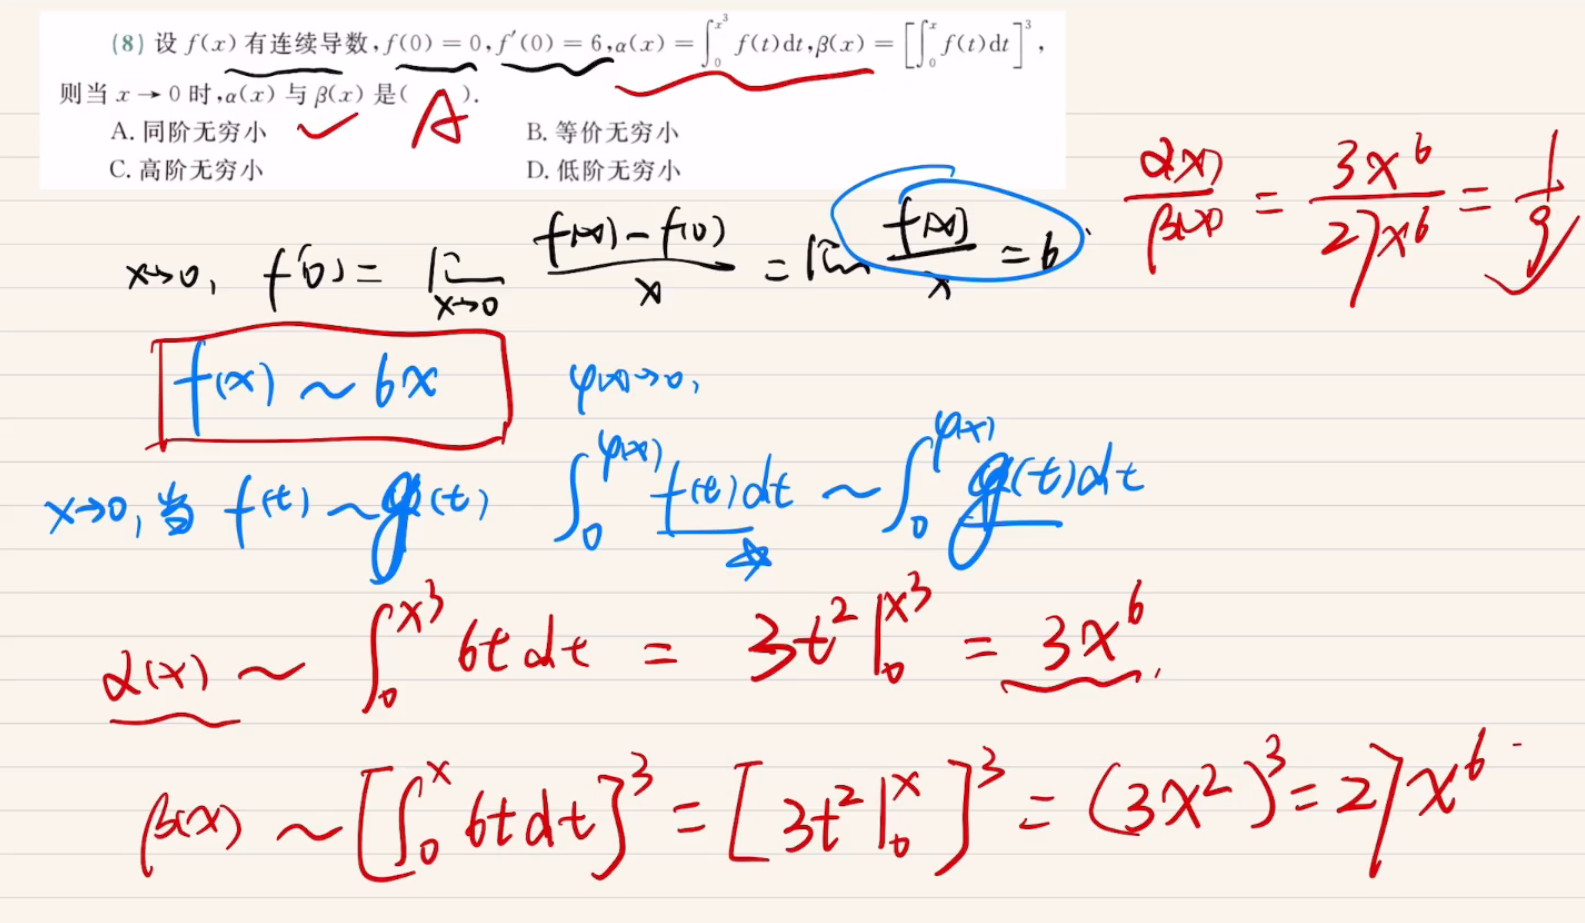 (8) 设 f(x) 有连续导数, f(0) = 0, f′(0) = 6, α(x) = ∫₀^{x³} f(t)dt, β(x) = [∫₀^x f(t)dt]³,
则当 x → 0 时, α(x) 与 β(x) 是( A ).
A. 同阶无穷小 ✓ B. 等价无穷小
C. 高阶无穷小 D. 低阶无穷小
α(x)/β(x) = 3x⁶/27x⁶ = 1/9
x→0, f′(0) = lim_{x→0} (f(x) − f(0))/x = lim f(x)/x = 6
f(x) ~ 6x φ(x)→0,
x→0, 当 f(t) ~ g(t) ∫₀^{φ(x)} f(t)dt ~ ∫₀^{φ(x)} g(t)dt
α(x) ~ ∫₀^{x³} 6t dt = 3t² |₀^{x³} = 3x⁶.
β(x) ~ [∫₀^x 6t dt]³ = [3t² |₀^x]³ = (3x²)³ = 27x⁶